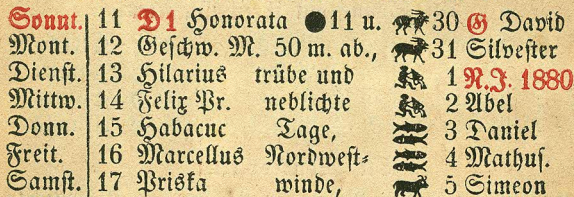 Sonnt. 11 D 1 Honorata ●11 u. 30 G David
Mont. 12 Geschw. M. 50 m. ab., 31 Silvester
Dienst. 13 Hilarius trübe und 1 N.J. 1880
Mittw. 14 Felix Pr. neblichte 2 Abel
Donn. 15 Habacuc Tage, 3 Daniel
Freit. 16 Marcellus Nordwest- 4 Mathus.
Samst. 17 Priska winde, 5 Simeon